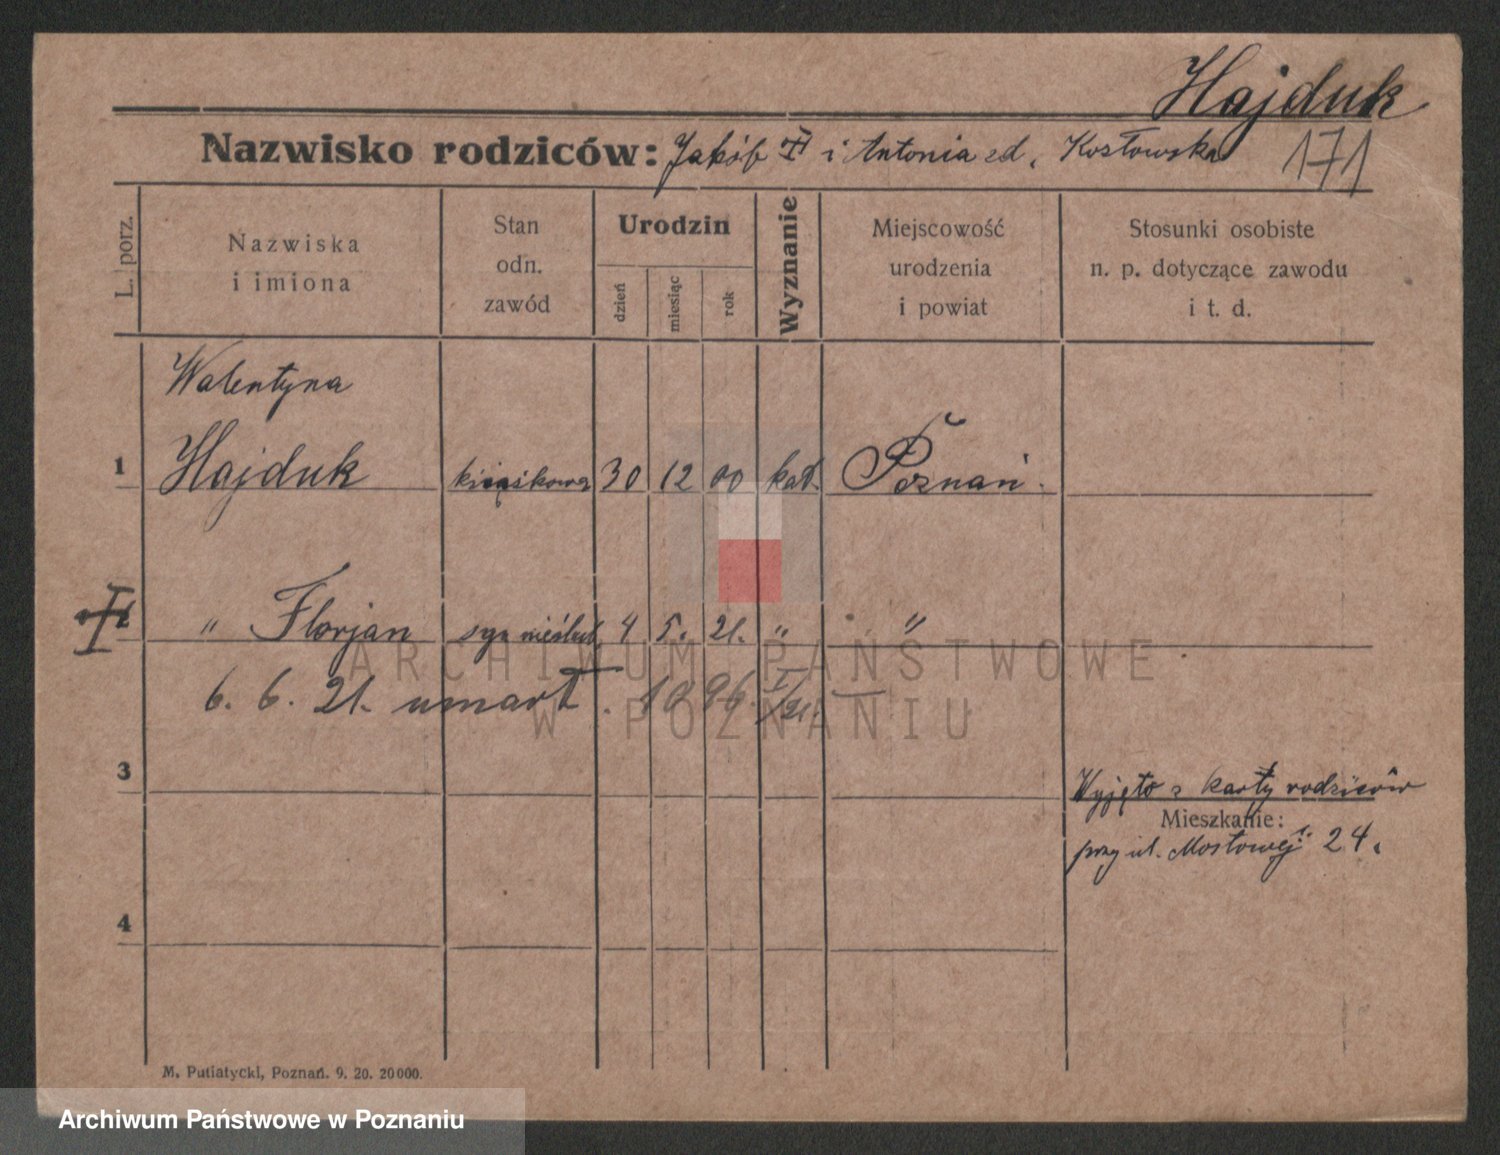 Hajduk
Nazwisko rodziców: Jakób i Antonia zd. Kosłowska 171
L. porz.
Nazwiska
i imiona
Stan
odn.
zawód
Urodzin
dzień
miesiąc
rok
Wyznanie
Miejscowość
urodzenia
i powiat
Stosunki osobiste
n. p. dotyczące zawodu
i t. d.
Walentyna
1 Hajduk 30 12 00 kat. Poznań.
" Florjan syn nieślub. 4 5. 21. " "
6. 6. 21. umarł.
3
Wyjęto z karty rodziców
Mieszkanie:
przy ul. Mostowej 24.
4
M. Putiatycki, Poznań. 9. 20. 20000.
ARCHIWUM PAŃSTWOWE
W POZNANIU
Archiwum Państwowe w Poznaniu